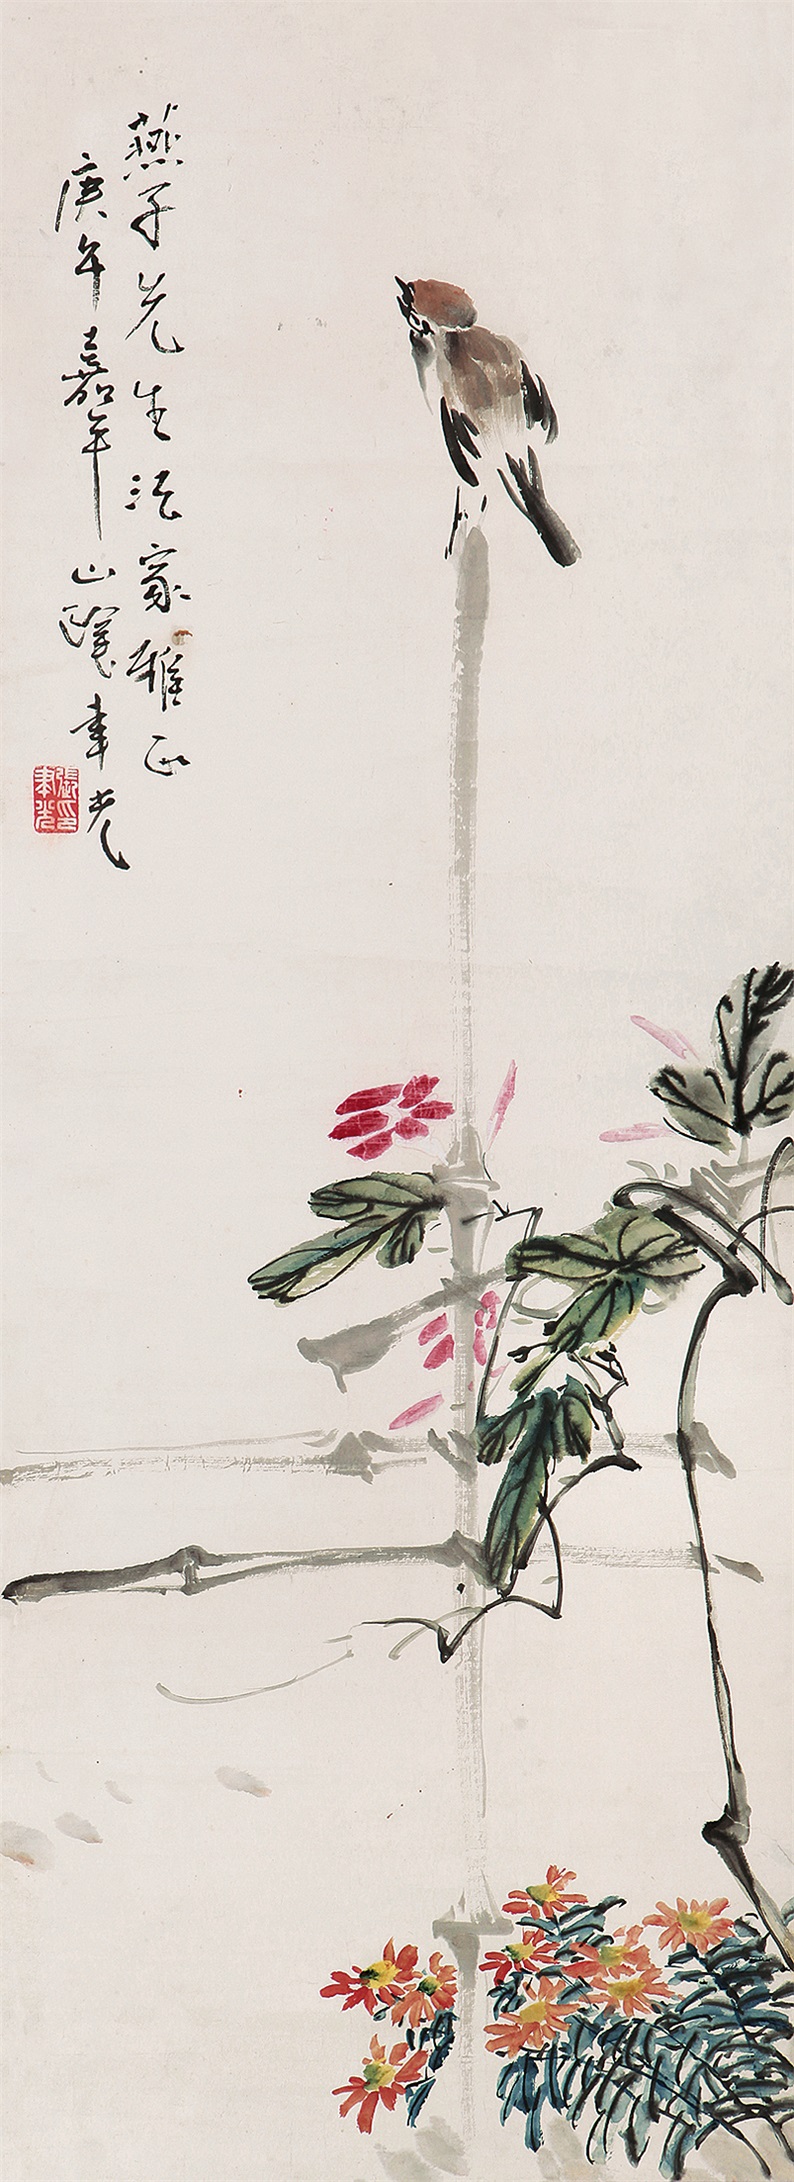 燕子先生法家雅正
庚午嘉平山陰聿光
張聿光印